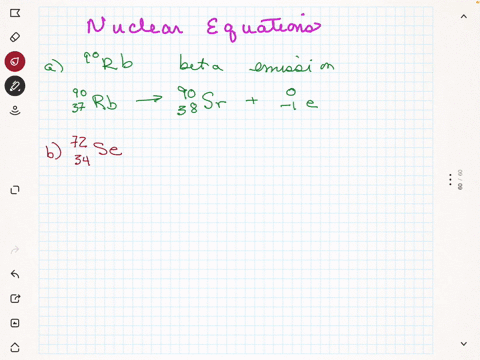 Nuclear Equations
a) ⁹⁰Rb beta emission
⁹⁰₃₇Rb → ⁹⁰₃₈Sr + ⁰₋₁e
b) ⁷²₃₄Se
60 / 60